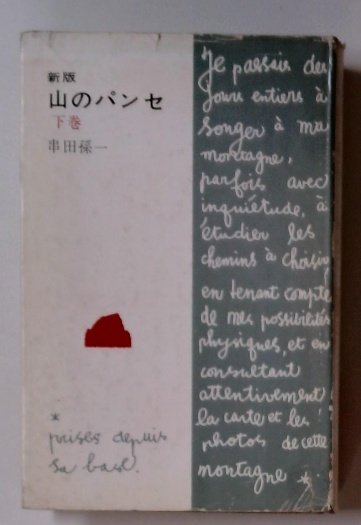 新版
山のパンセ
下巻
串田孫一
Je passais des
jours entiers à
songer à ma
montagne,
parfois avec
inquiétude, à
étudier les
chemins à choisir
en tenant compte
de mes possibilités
physiques, et en
consultant
attentivement
la carte et les
photos de cette
montagne *
*
prises depuis
sa base.